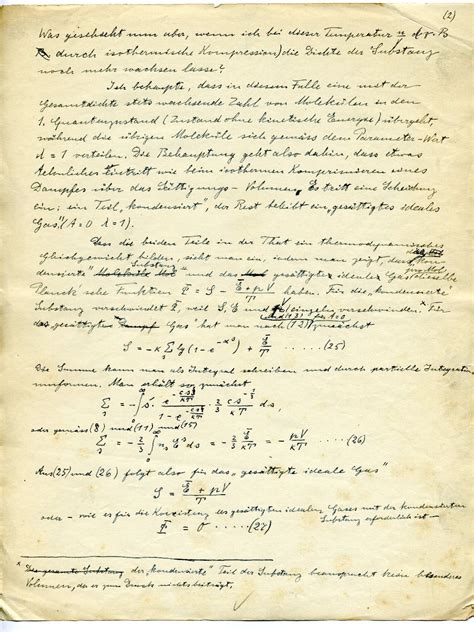 (2)
Was geschieht nun aber, wenn ich bei dieser Temperatur n/V (z. B.
durch isothermische Kompression) die Dichte der Substanz
noch mehr wachsen lasse?
Ich behaupte, dass in diesem Falle eine mit der
Gesamtdichte stets wachsende Zahl von Molekülen in den
1. Quantenzustand (Zustand ohne kinetische Energie) übergeht
während die übrigen Moleküle sich gemäss dem Parameter-Wert
λ = 1 verteilen. Die Behauptung geht also dahin, dass etwas
Aehnliches eintritt wie beim isothermen Komprimieren eines
Dampfes über das Sättigungs-Volumen. Es tritt eine Scheidung
ein; ein Teil „kondensiert", der Rest bleibt ein „gesättigtes ideales
Gas". (A = 0 λ = 1).
Dass die beiden Teile in der That ein thermodynamisches
Gleichgewicht bilden, sieht man ein, indem man zeigt, dass die „kon-
densierte" Substanz und das gesättigte ideale Gas pro Mol dieselbe
Planck'sche Funktion Φ = S − (Ē + pV)/T haben. Für die „kondensierte"
Substanz verschwindet Φ, weil S, Ē und V einzeln verschwinden.× Für
das „gesättigte Gas" hat man nach (12) und (13) für A = 0 zunächst
S = −κ Σ lg(1 − e^{−αs}) + Ē/T ····· (25)
Die Summe kann man als Integral schreiben und durch partielle Integration
umformen. Man erhält so zunächst
Σ = −∫ s · e^{−cs^{2/3}/κT} / (1 − e^{−cs^{2/3}/κT}) · 2/3 · cs^{−1/3}/κT ds,
oder gemäss (8) und (11) und (15)
Σ = −2/3 ∫ n_s E^s ds = −2/3 Ē/κT = −pV/κT ····· (26)
Aus (25) und (26) folgt also für das „gesättigte ideale Gas"
S = (Ē + pV)/T
oder – wie es für die Koexistenz des gesättigten idealen Gases mit der kondensierten
Substanz erforderlich ist –
Φ = 0 ······ (27)
× Der „kondensierte" Teil der Substanz beansprucht kein besonderes
Volumen, da er zum Druck nichts beiträgt.